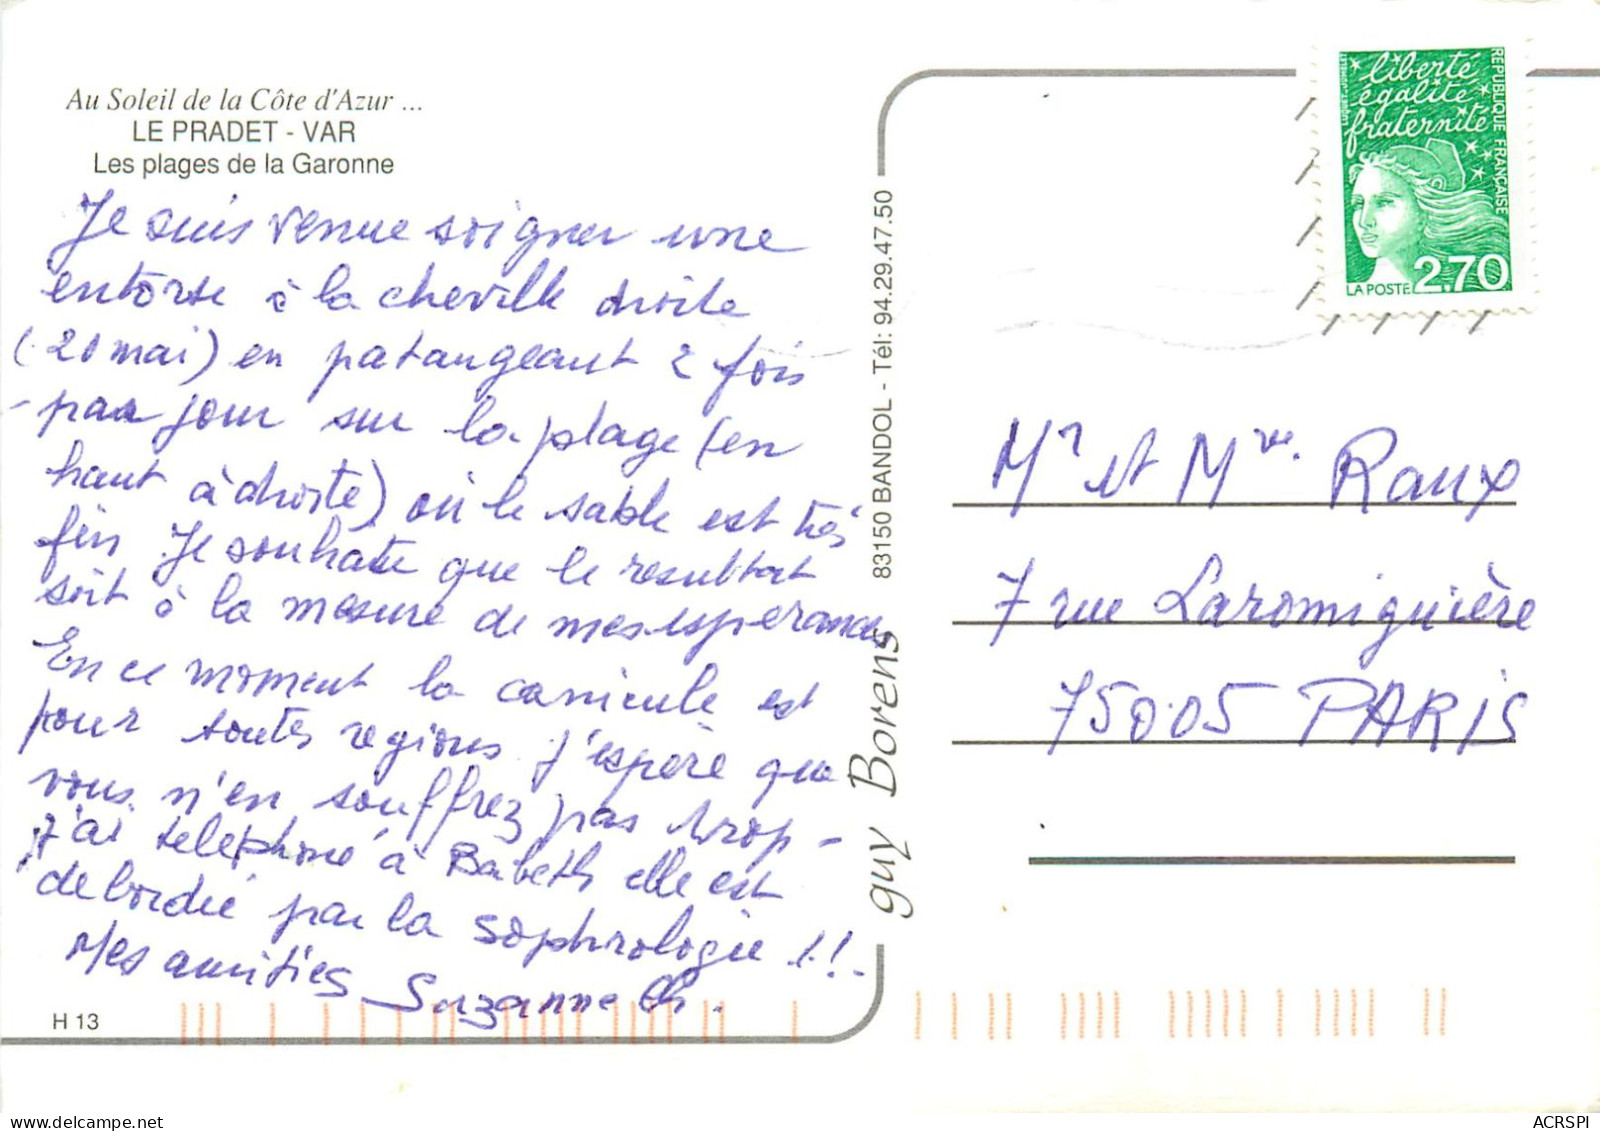 Au Soleil de la Côte d'Azur ...
LE PRADET - VAR
Les plages de la Garonne
Je suis venue soigner une
entorse à la cheville droite
(20 mai) en patangeant 2 fois
par jour sur la plage (en
haut à droite) où le sable est très
fin Je souhaite que le resultat
soit à la mesure de mes esperances
En ce moment la canicule est
pour toutes regions j'espère que
vous n'en souffrez pas trop -
J'ai telephoné à Babeth elle est
debordée par la sophrologie !!.
Mes amitiés Suzanne Ch.
H 13
guy Borens 83150 BANDOL - Tél: 94.29.47.50
liberté
égalité
fraternité
REPUBLIQUE FRANÇAISE
LA POSTE 2,70
Mr et Mme. Raux
7 rue Laromiguière
75005 PARIS
ACRSPI